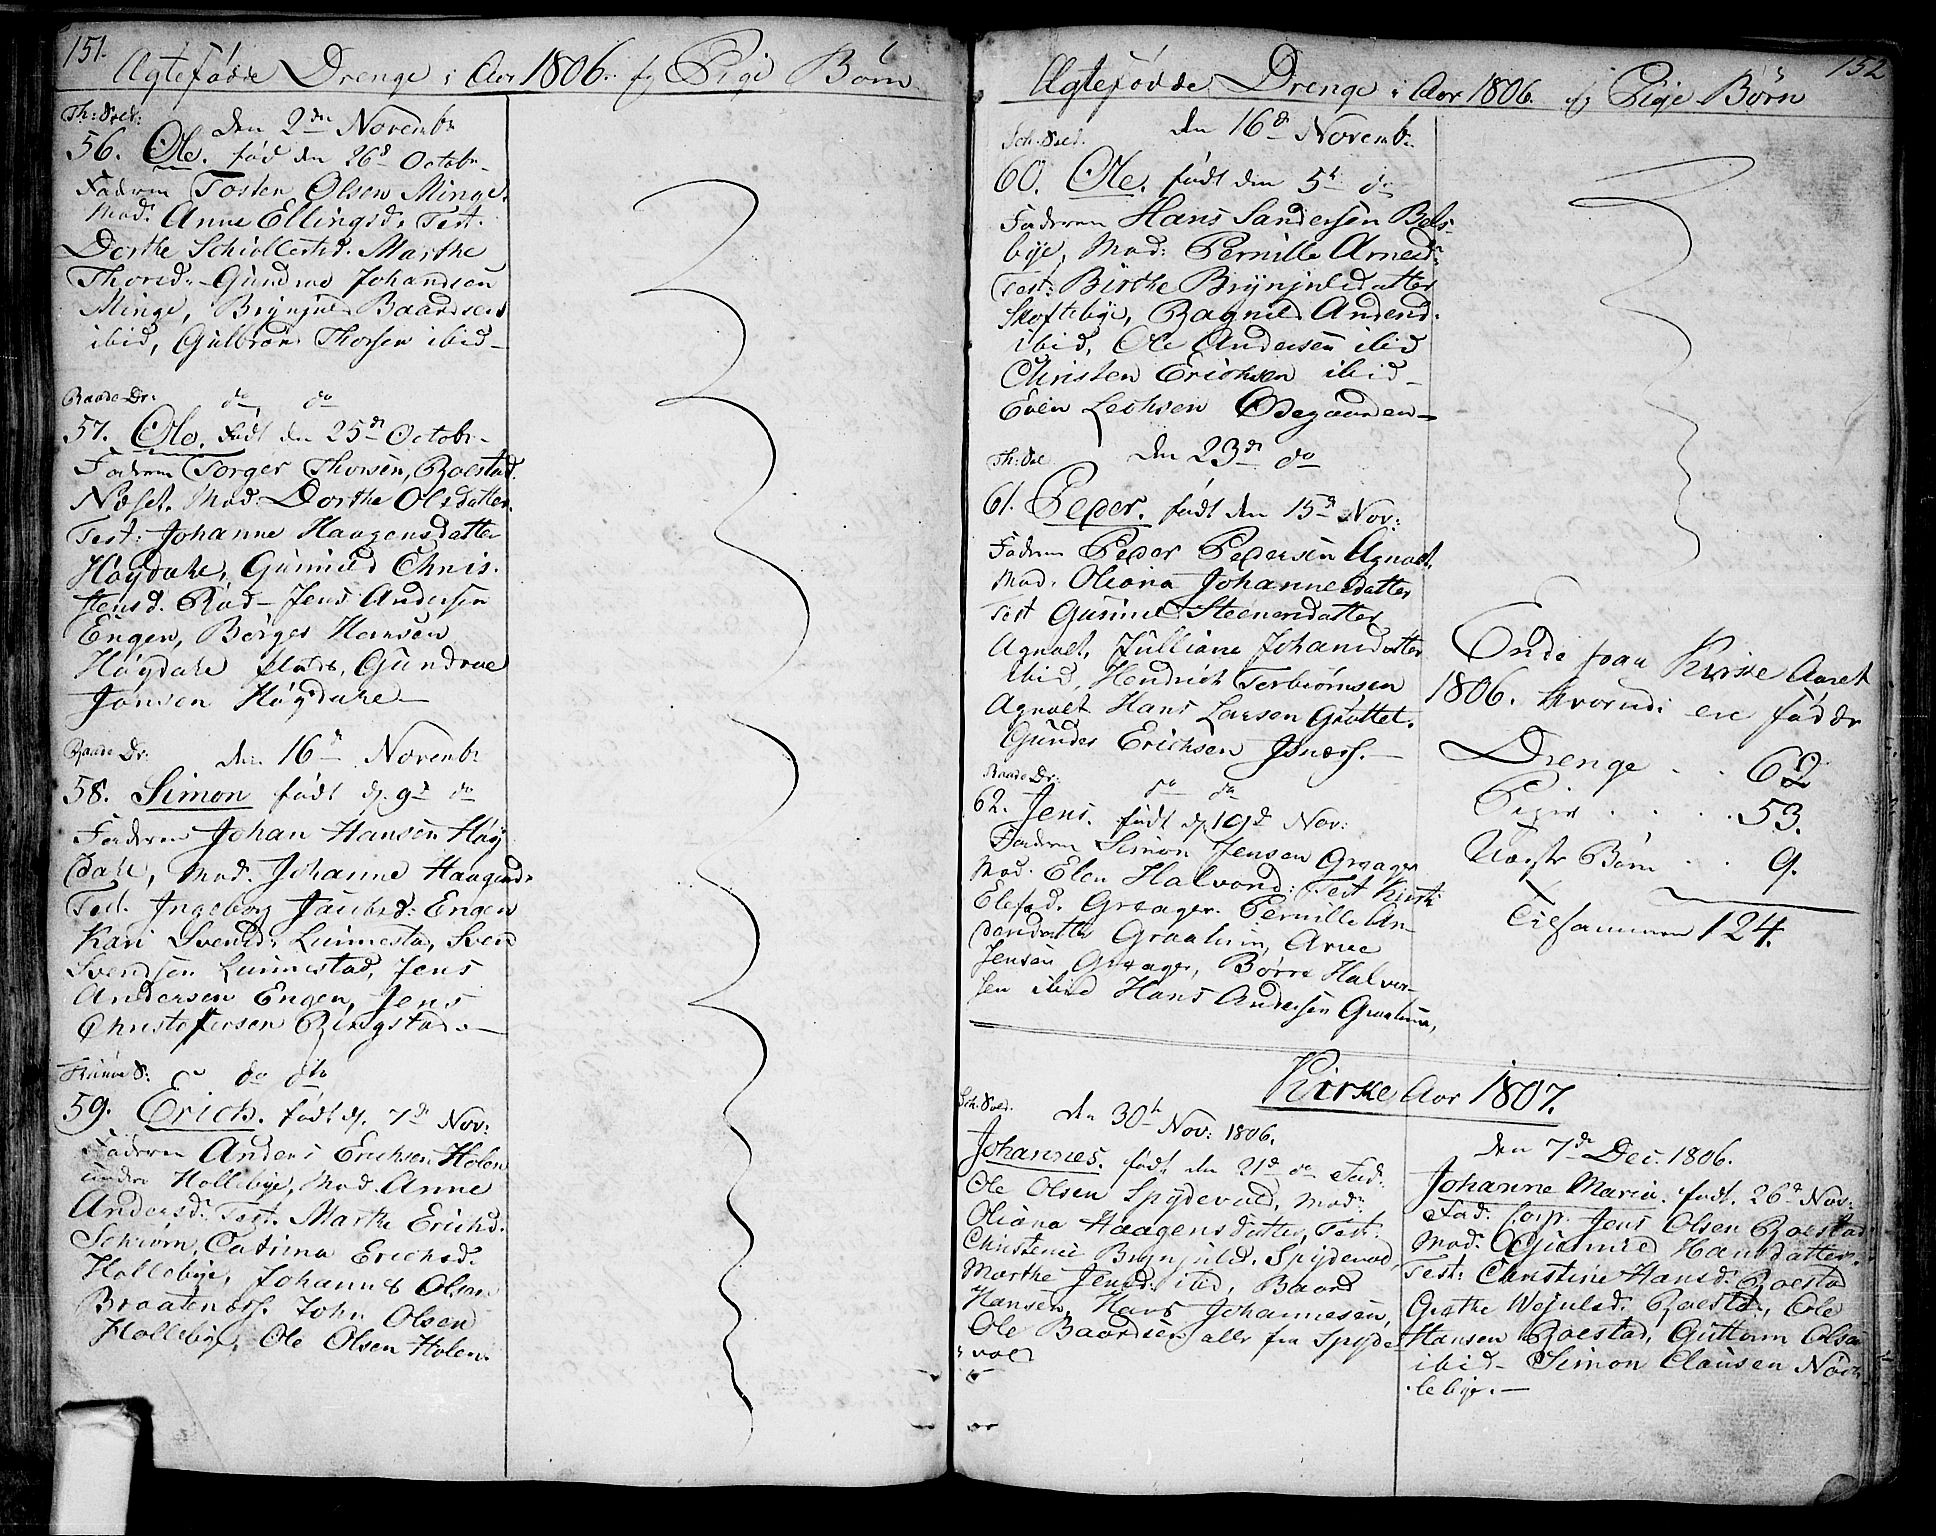 151.
Ægtefødde Drenge i Aar 1806. og Pige Børn
Th: Soel:
Den 2den Novembr
56. Ole. fød den 26d Octobr
Faderen Tosten Olsen Minge.
Mod. Anne Ellingsd. Test.
Dorthe Schiollestd. Marthe
Thorsd. Gundmo Johandsen
Minge, Brynjul Baardsen
ibid, Gulbran Thorsen ibid
Raade Dr: do do
57. Ole. født den 25de Octobr
Faderen Torger Thorsen, Roestad
Næset. Mod. Dorthe Olsdatter
Test: Johanne Haagensdatter
Høydahe, Gunnild Chris-
stensd. Rød - Jens Andersen
Engen, Børger Hansen
Høydahe plads, Gundroe
Jonsen Høydahe
Raade Dr: den 16d Novemb:
58. Simon født d. 9d do
Faderen Johan Hansen Høy
dahe, Mod. Johanne Haagensd.
Test. Ingeborg Jacobsd: Engen
Kari Svensd. Lunnestad, Sven
Svendsen Lunnestad, Jens
Andersen Engen, Jens
Christofersen Ringstad.
do dito
59. Erich. født d. 7d Nov:
Faderen Anders Erichsen Holen
under Hollebye, Mod. Anne
Andersd. Test. Marthe Erichsd.
Schiørn, Catrina Erichsd.
Hollebye, Johannes Olsen
Braatenæss. John Olsen
Hollebye, Ole Olsen Holen.
152
Ægtefødde Drenge i Aar 1806. og Pige Børn
Sch: Soel. den 16d Novemb.
60. Ole. født den 5t do
Faderen Hans Sandersen Bals-
bye, Mod: Pernille Arnesd.
Test: Birthe Brynjulsdatter
Skoftebye, Ragnild Andersd.
ibid, Ole Andersen ibid
Christen Erichsen ibid
Even Lechsen Oegaarden
Th: Soe den 23de do
61. Peder. født den 15de Nov:
Faderen Peder Pedersen Agnalt,
Mod. Oliana Johannesdatter
Test Gunnil Steenersdatter
Agnalt, Julliane Johansdatter
ibid, Hendrich Torbiørnsen
Agnalt Hans Larsen Grøttet.
Gunder Erichsen Isnæss.
Raade Dr: do do
62. Jens. født d. 19d Nov:
Faderen Simon Jensen Graager
Mod. Elen Halvorsd: Test Kirsti
Elefsd. Graager. Pernille An-
dersdatter Graalum, Arne
Jensen Graager, Børre Halvor-
sen ibid Hans Andersen Graalum,
Ende paa Kirke Aaret
1806. hvorudi ere fødde
Drenge . . 62
Piger . . . . 53.
Uægte Børn . . 9.
Tilsammen 124.
Kirke Aar 1807.
Sch: Soel. den 30te Nov: 1806.
Johannes. født den 21d do Fad:
Ole Olsen Spydevold, Mod:
Oliana Haagensdatter, Test:
Christence Brynjulsd. Spydevold,
Marthe Jensd. ibid, Baard
Hansen, Hans Johannesen,
Ole Baardsen alle fra Spyde
vold
den 7de Dec. 1806.
Johanne Maria. født. 26d Nov:
Fad: Corp. Jens Olsen Roestad
Mod. Gunnild Hansdatter.
Test: Christine Hansd: Roestad
Grethe Wejulsd. Roestd, Ole
Hansen Roestad, Guttorm Olsen
ibid - Simon Clausen Nød-
lebye.